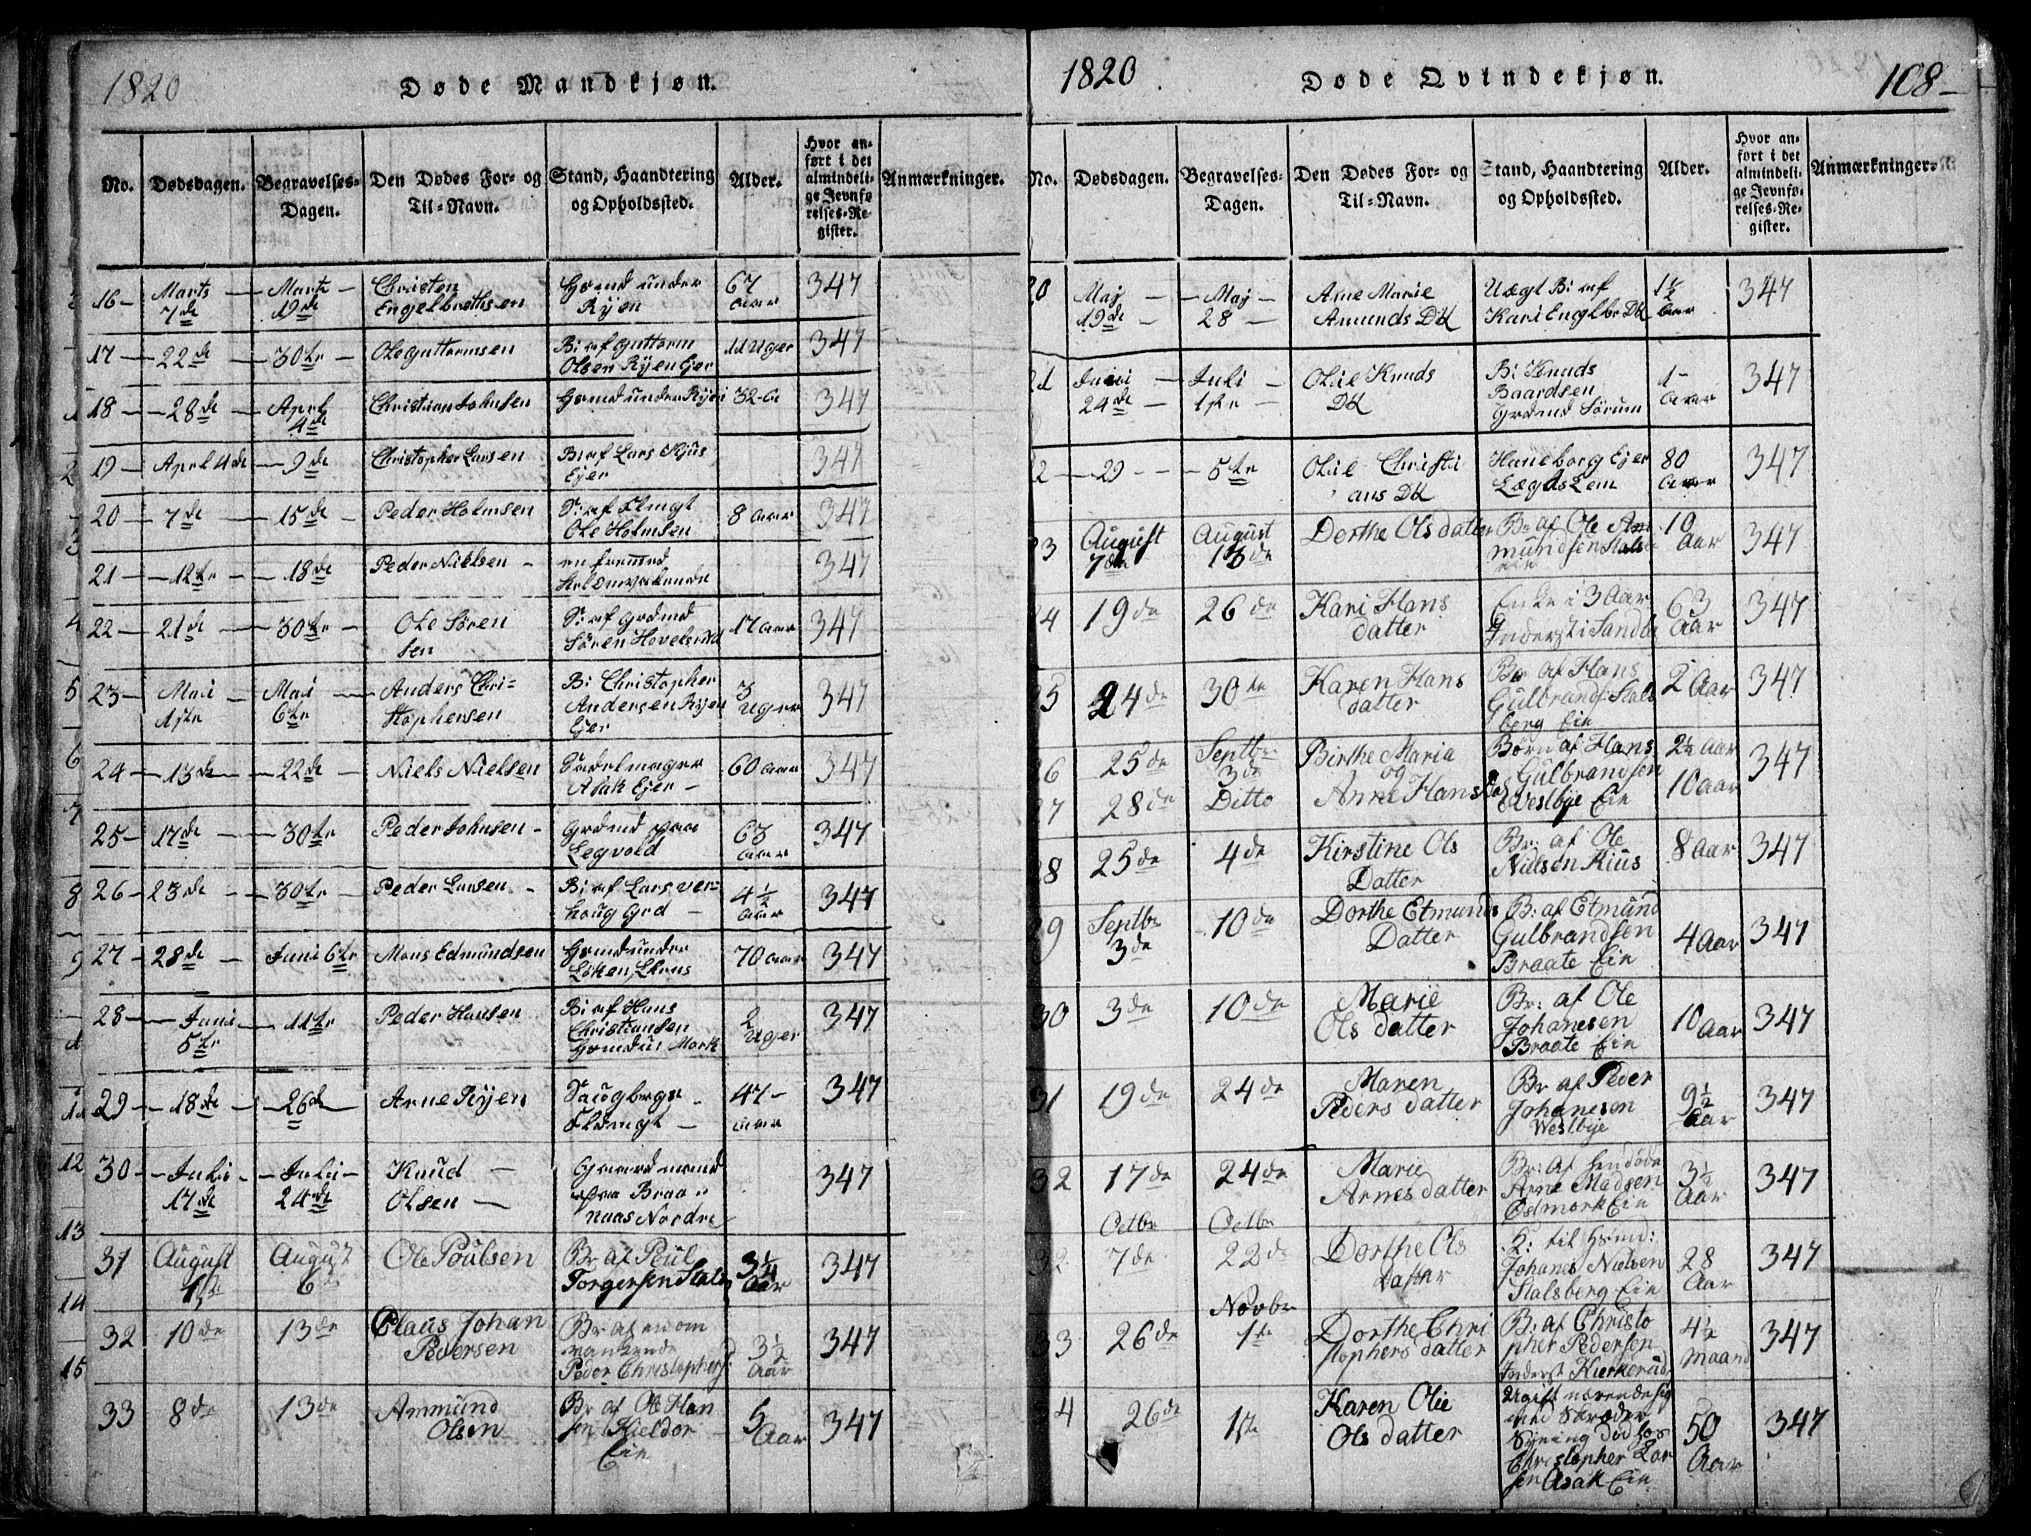 1820
Døde Mandkjøn.
No.
Dødsdagen.
Begravelses-
Dagen.
Den Dødes For- og
Til-Navn.
Stand, Haandtering
og Opholdssted.
Alder.
Hvor an-
ført i det
almindeli-
ge Jevnfø-
relses-Re-
gister.
Anmærkninger.
16 Marts 7de Marts 19de Christen Engelbrethsen Huusmd under Ryen 67 aar 347
17 22de 30te Ole Guttormsen B: af Guttorm Olsen Ryen Ejer 11 Uger 347
18 28de April 4de Christian Johnsen under Ryen 32 347
19 April 4de 9de Christopher Larsen B: af Lars Kjus Ejer 347
20 7de 15de Peder Holmsen Ole Holmsen 8 aar 347
21 12te 18de Peder Nielsen en fremmed 347
22 21de 30te Ole Sörensen S: af Grdmd Sören Hovelsrud 17 aar 347
23 Mai 1ste Mai 6te Anders Christophersen B: Christopher Andersen Ryen Ejer 3 Uger 347
24 13de 22de Niels Nielsen Sadelmager Asak Ejer 60 aar 347
25 17de 30te Peder Johnsen Grdmd paa Legvold 63 aar 347
26 23de 30te Peder Larsen B: af Lars Verhoug Grd 4½ aar 347
27 28de Juni 6te Mons Edmundsen under Løken 70 aar 347
28 Juni 5te 11te Peder Hansen B: af Hans Christiansen Mork 2 Uger 347
29 18de 26de Arne Ryen 47 aar 347
30 Juli 17de Juli 24de Knud Olsen Gaardmand paa Braanaas Nordre 347
31 August 1ste August 6te Ole Poulsen Br af Poul Torgersen 3¼ Aar 347
32 10de 13de Claus Johan Pedersen Br af en omvankende Peder Christophers 3½ Aar 347
33 8de 13de Ammund Olsen Br af Ole Hansen Kieldor Ein 5 Aar 347
1820
Døde Qvindekjøn.
108
No.
Dødsdagen.
Begravelses-
Dagen.
Den Dødes For- og
Til-Navn.
Stand, Haandtering
og Opholdssted.
Alder.
Hvor an-
ført i det
almindeli-
ge Jevnfø-
relses-Re-
gister.
Anmærkninger.
20 Maj 19de Maj 28 Ane Marie Amunds Dtt Uægt B: af Kari Englbr Dtt 1½ aar 347
21 Juni 24de Juli 1ste Olie Knuds Dtt B: Knuds Baardsen Grdmd Sörum 1 aar 347
22 29 5te Olie Christians Dtt Haneborg Ejer Lægds Lem 80 aar 347
23 August 7de August 13de Dorthe Ols datter Br af Ole Ammundsen 10 Aar 347
24 19de 26de Kari Hans datter Enke i 3 Aar Inderst i Sandb 63 Aar 347
25 24de 30te Karen Hans datter Br af Hans Gulbrands Stalsberg Ein 2 Aar 347
26 25de Septbr 3de Birthe Maria og Børn af Hans Gulbrandsen 2½ Aar 347
27 28de Ditto Anne Hans Westbye Ein 10 Aar
28 25de 4de Kirstine Ols Datter Br: af Ole Nielsen Kius 8 Aar 347
29 Septbr 3de 10de Dorthe Etmunds Datter B: af Etmund Gulbrandsen Braate Ein 4 Aar 347
30 3de 10de Marie Ols datter Br: af Ole Johanesen Braate Ein 10 Aar 347
31 19de 24de Maren Peders datter Br af Peder Johanesen Westbye 9½ Aar 347
32 17de 24de Marie Arnes datter Br: af Arne Madsen Østmork Ein 3½ Aar 347
32 Octbr 7de Octbr 22de Dorthe Ols Datter K: til Johanes Nielsen Stalsberg Ein 28 Aar 347
33 26de Novbr 1te Dorthe Christophers datter B: af Christopher Pedersen Inderst Kierkerud 4½ Maand 347
4 26de 1ste Karen Olie Ols datter Ugift nærende sig med Skræder Syning død hos Christopher Larsen Asak Ein 50 Aar 347